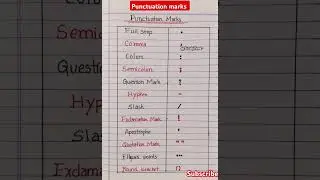 Punctuation marks
Punctuation Marks
Full stop .
Comma ,
Colon :
Semicolon ;
Question Mark ?
Hyphen -
Slash /
Exclamation Mark !
Apostrophe '
Quotation Mark " "
Ellipsis points ...
Round bracket ()
Semicol
Question
Hyp
Slas
Exclamat
Subscribe